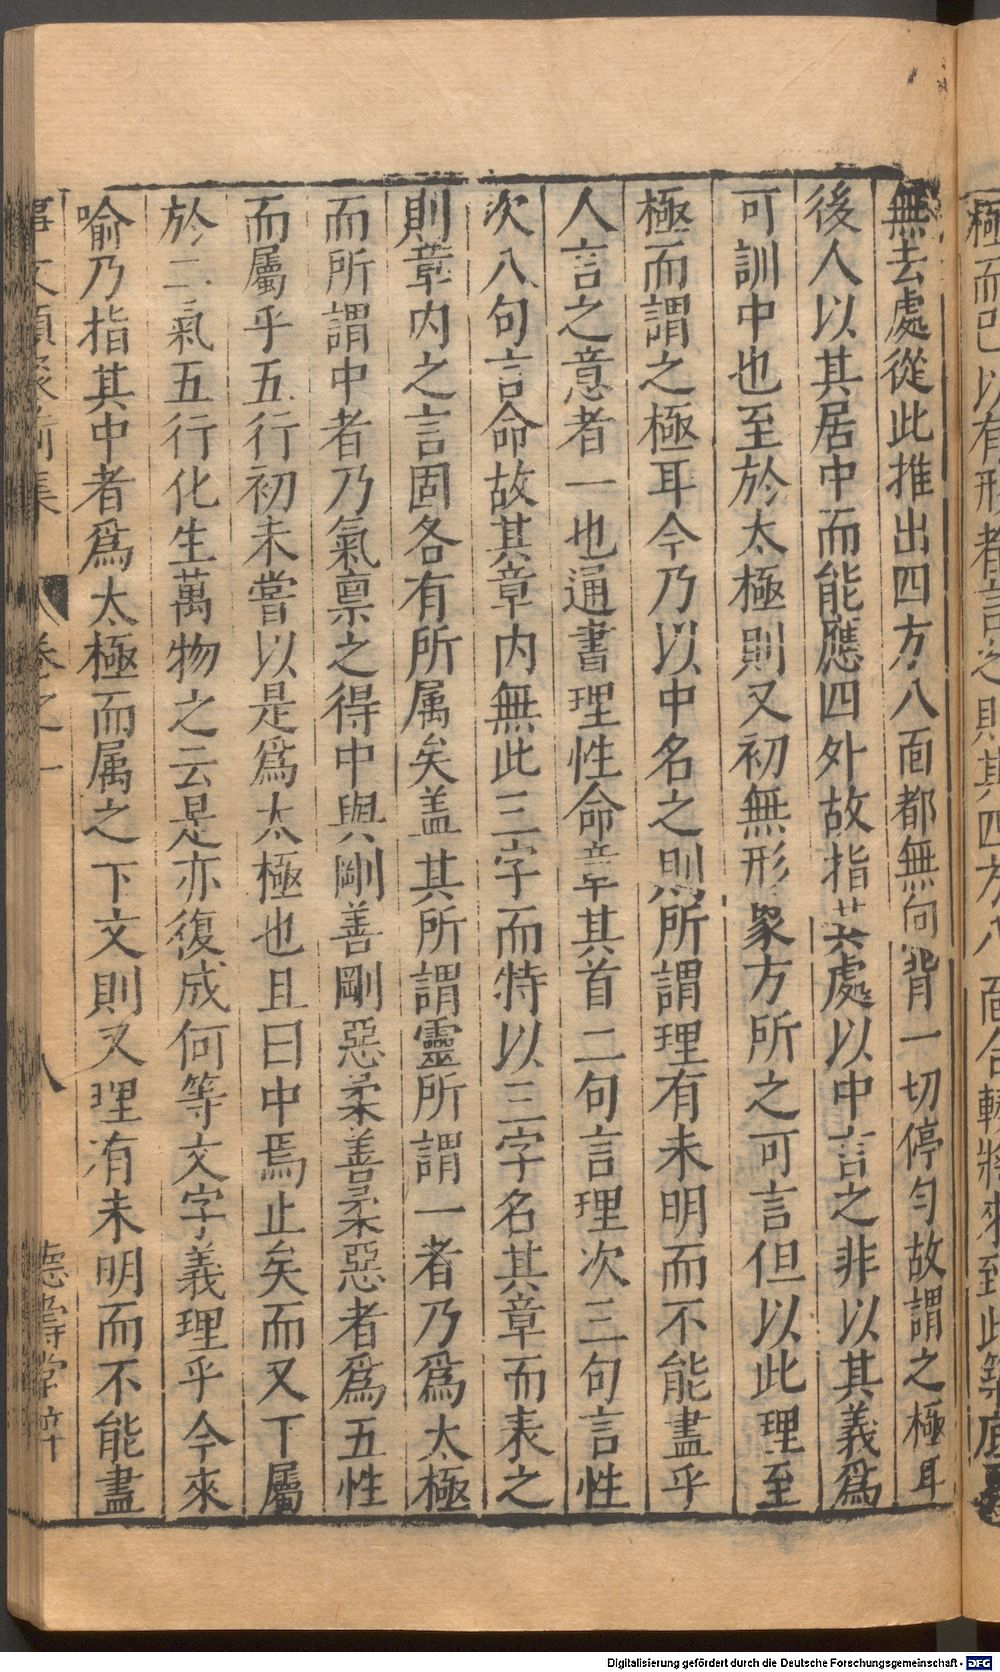 極而已以有形者言之則其四方八面合輳將來到此築底
無去處從此推出四方八面都無向背一切停勻故謂之極耳
後人以其居中而能應四外故指其處以中言之非以其義爲
可訓中也至於太極則又初無形象方所之可言但以此理至
極而謂之極耳今乃以中名之則所謂理有未明而不能盡乎
人言之意者一也通書理性命章其首二句言理次三句言性
次八句言命故其章内無此三字而特以三字名其章而表之
則章内之言固各有所属矣盖其所謂靈所謂一者乃爲太極
而所謂中者乃氣禀之得中與剛善剛惡柔善柔惡者爲五性
而屬乎五行初未嘗以是爲太極也且曰中焉止矣而又下屬
於二氣五行化生萬物之云是亦復成何等文字義理乎今來
喻乃指其中者爲太極而属之下文則又理有未明而不能盡
事文類聚前集 卷之一 八 德壽堂梓
Digitalisierung gefördert durch die Deutsche Forschungsgemeinschaft - DFG